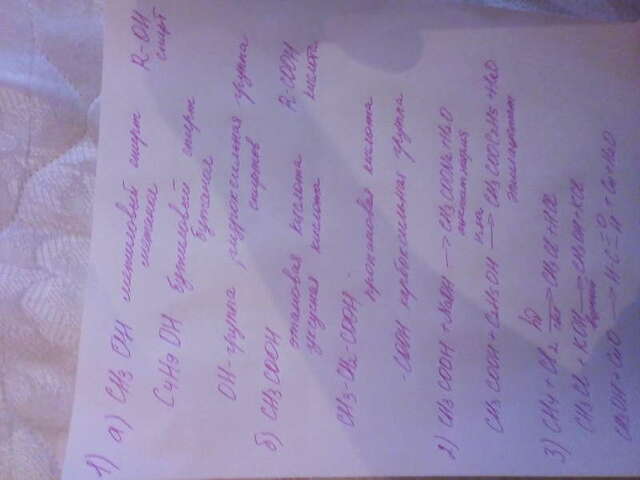 1) а) CH3 OH метиловый спирт R-OH
метанол спирт
C4H9 OH бутиловый спирт
бутанол
OH-группа, гидроксильная группа
спиртов
б) CH3COOH этановая кислота R-COOH
уксусная кислота кислота
CH3-CH2-COOH пропановая кислота
-COOH карбоксильная группа
2) CH3COOH + NaOH → CH3COONa + H2O
CH3COOH + C2H5OH → CH3COOC2H5 + H2O
3) CH4 + Cl2 hν → CH3Cl + HCl
CH3Cl + KOH → CH3OH + KCl
CH3OH + CuO → H-C=O H + Cu + H2O